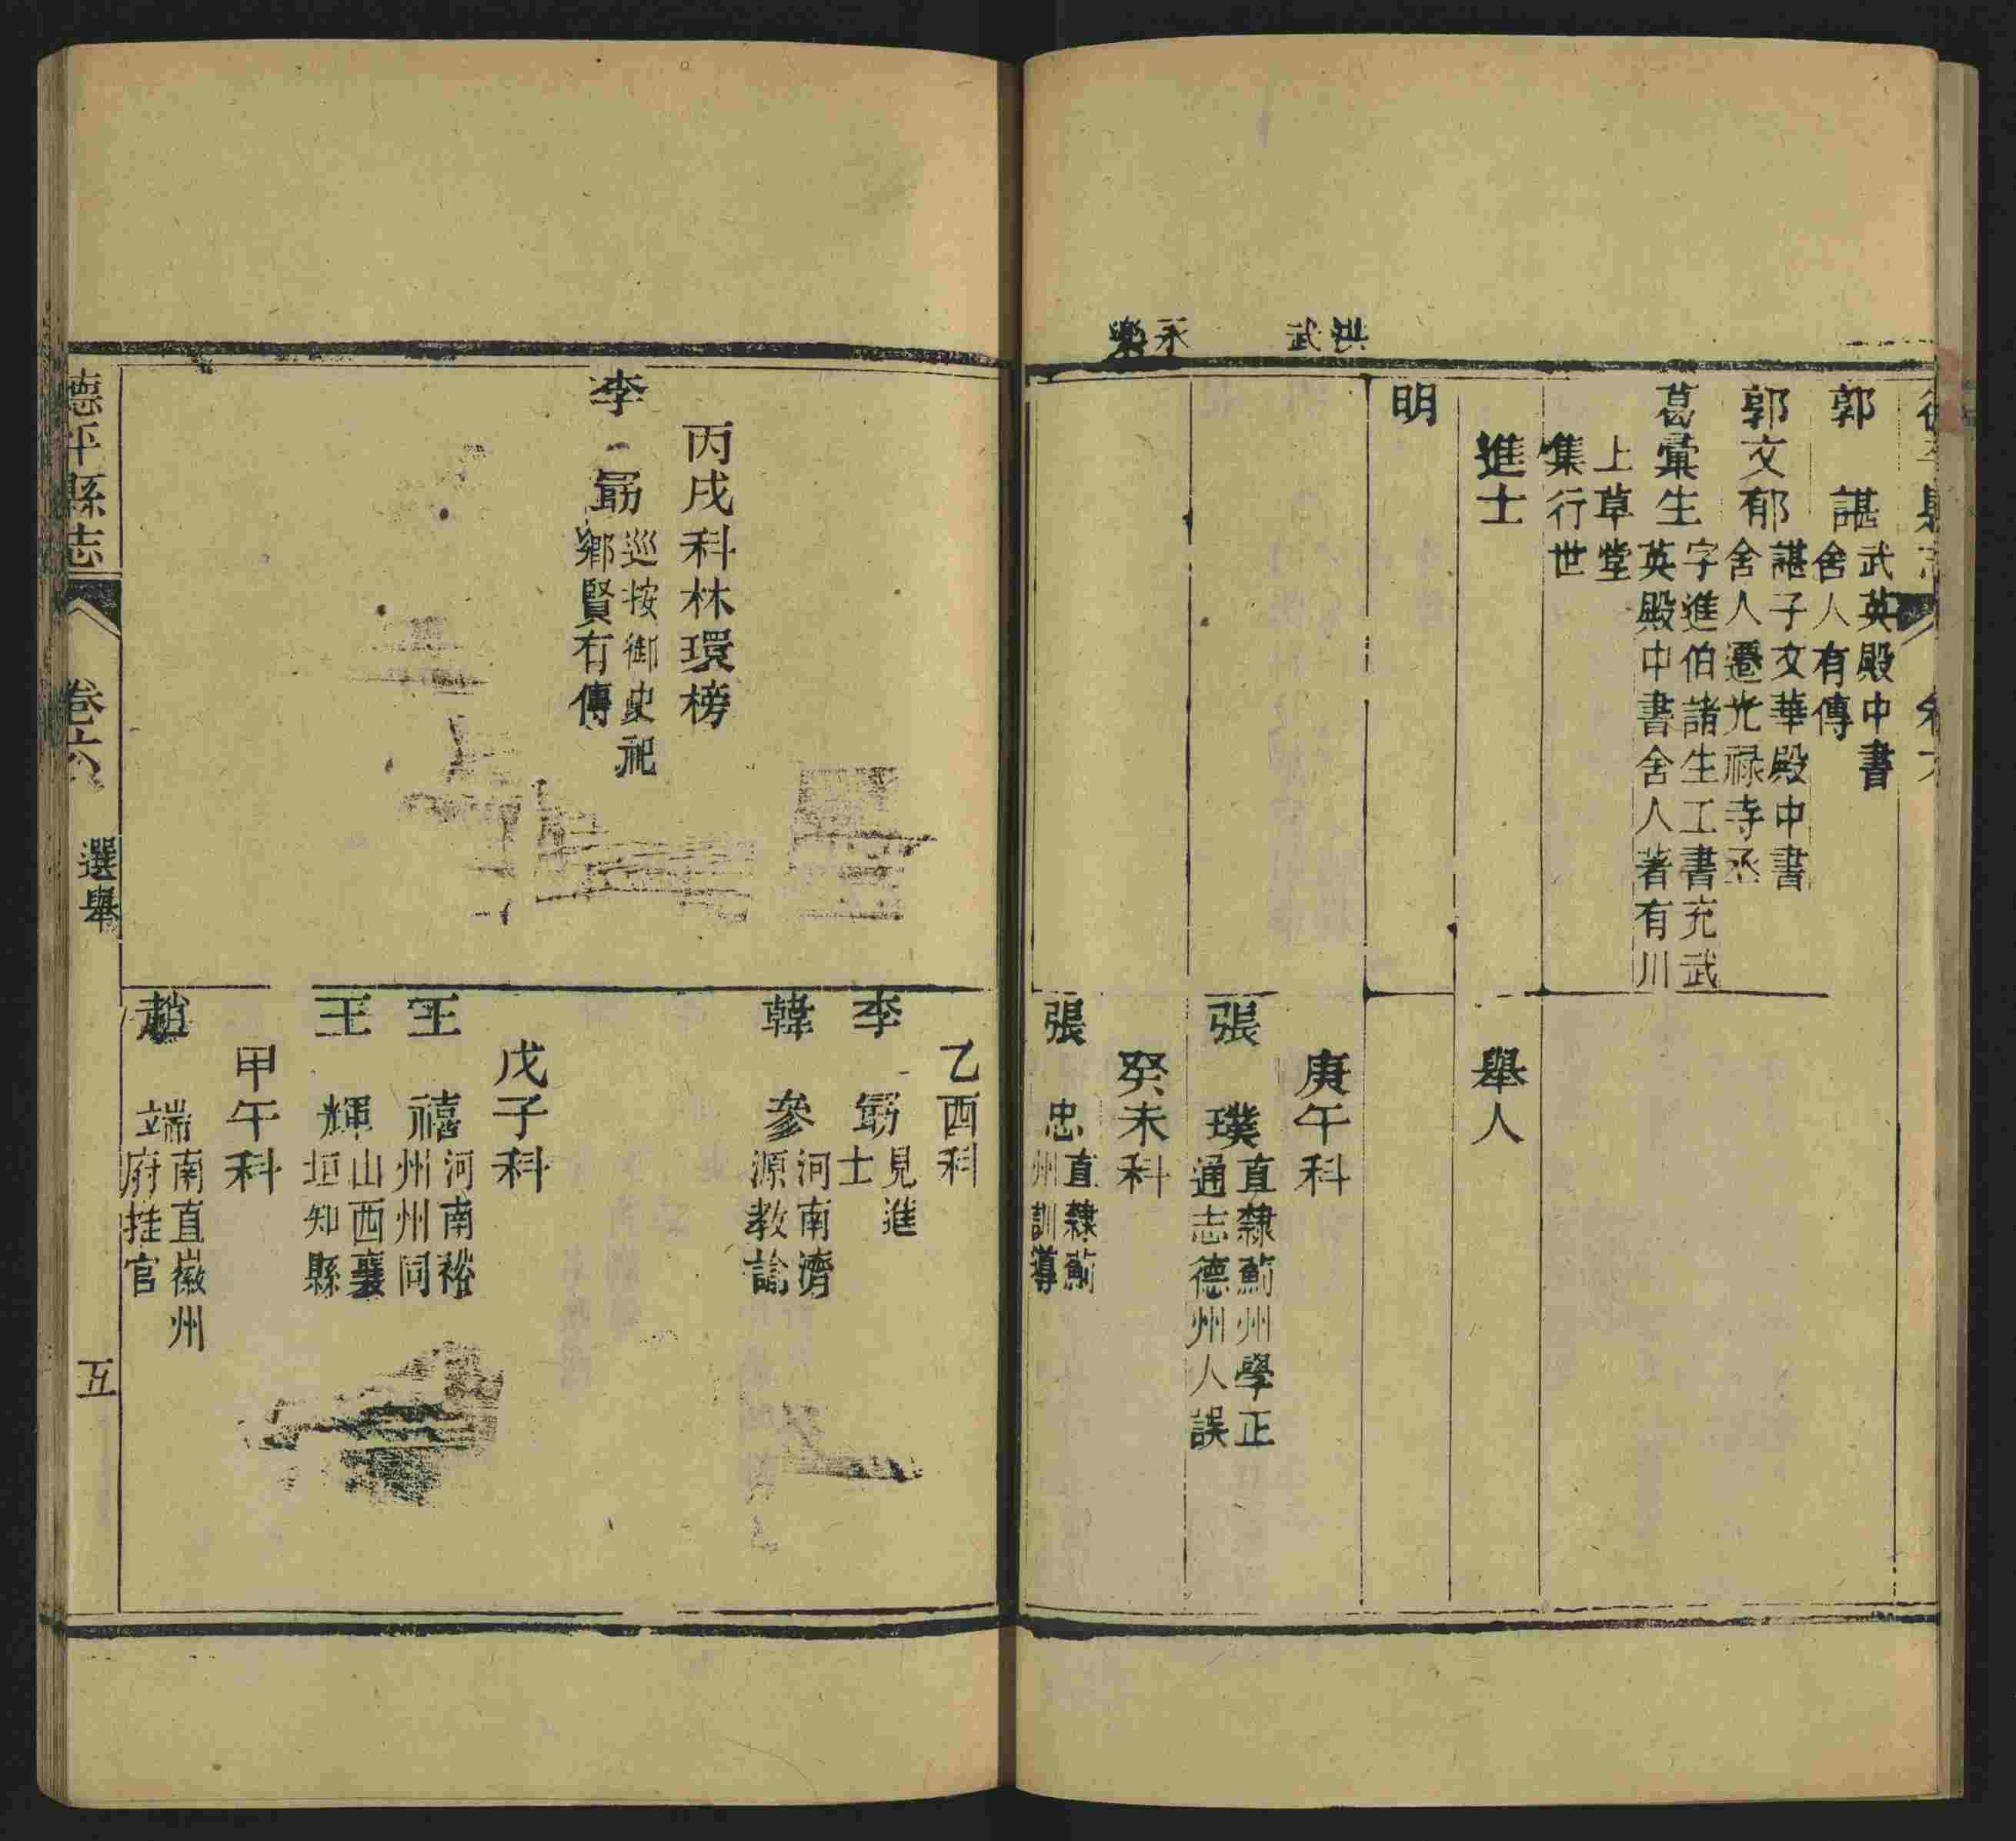 郭　諶武英殿中書
舍人有傳
郭文郁諶子文華殿中書
舍人遷光祿寺丞
葛彙生字進伯諸生工書充武
英殿中書舍人著有川
上草堂
集行世
進士
舉人
明
洪武
庚午科
張　璞直隸薊州學正
通志德州人誤
永樂
癸未科
張　忠直隸薊
州訓導
乙酉科
李　勗見進
士
韓　參河南濟
源教諭
丙戌科林環榜
李　勗巡按御史祀
鄉賢有傳
戊子科
王　禧河南裕
州州同
王　輝山西襄
垣知縣
甲午科
趙　端南直徽州
府推官
德平縣志
卷六
選舉
五